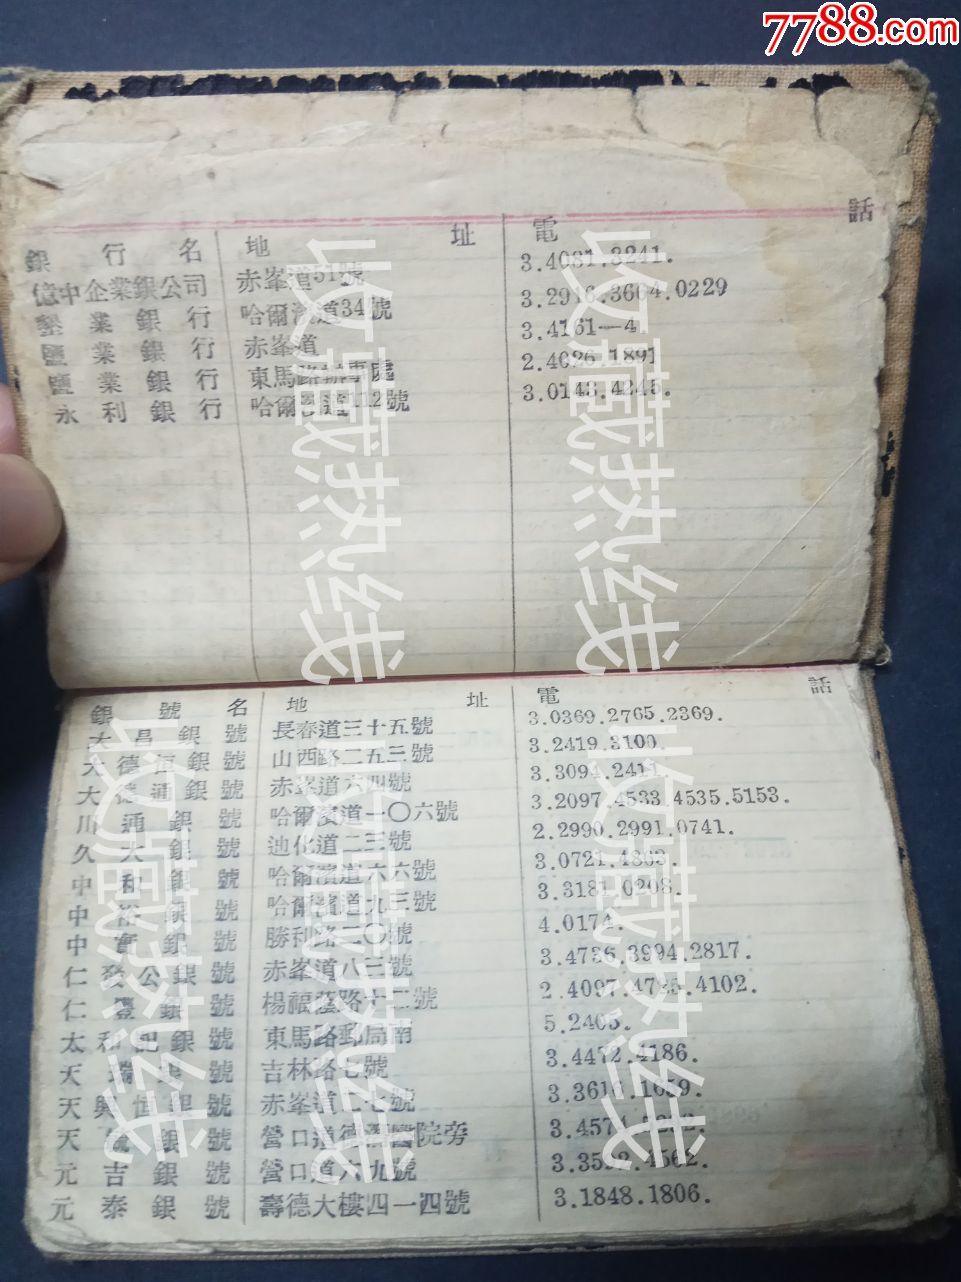 7788.com
銀行名 地址 電話
億中企業銀公司 赤峯道51號 3.4081.3241.
墾業銀行 哈爾濱道34號 3.2916.3664.0229
鹽業銀行 赤峯道 3.4161—4
鹽業銀行 東馬路辦事處 2.4026.1891
永利銀行 哈爾濱道112號 3.0143.4245.
銀號名 地址 電話
大昌銀號 長春道三十五號 3.0369.2765.2369.
大德恒銀號 山西路二五三號 3.2419.3100.
大德通銀號 赤峯道六四號 3.3094.2411
川通銀號 哈爾濱道一〇六號 3.2097.4533.4535.5153.
久大銀號 迪化道二三號 2.2990.2991.0741.
中和銀號 哈爾濱道六六號 3.0721.4863.
中裕銀號 哈爾濱道九三號 3.3181.0208.
中實銀號 勝利路二〇號 4.0174.
仁發公銀號 赤峯道八三號 3.4736.3994.2817.
仁豐銀號 楊福蔭路十二號 2.4097.4735.4102.
太和記銀號 東馬路郵局南 5.2405.
天瑞銀號 吉林路七號 3.4472.4186.
天興恒銀號 赤峯道七號 3.3616.1659.
天銀號 營口道德醫院旁 3.4574.
元吉銀號 營口道六九號 3.3592.4562.
元泰銀號 壽德大樓四一四號 3.1848.1806.
收藏热线
收藏热线
收藏热线
收藏热线
收藏热线